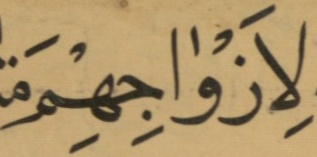 لِاَزْوَاجِهِمْ